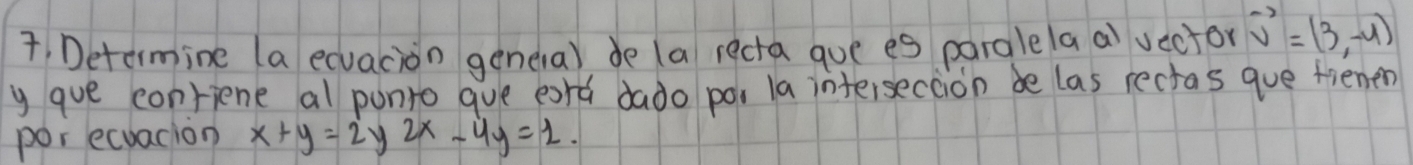 7. Determine la ecuación general de la recta que es paralela al vector v⃗ = (3, -4)
y que contiene al punto que está dado por la intersección de las rectas que tienen
por ecuación x + y = 2 y 2x - 4y = 1.